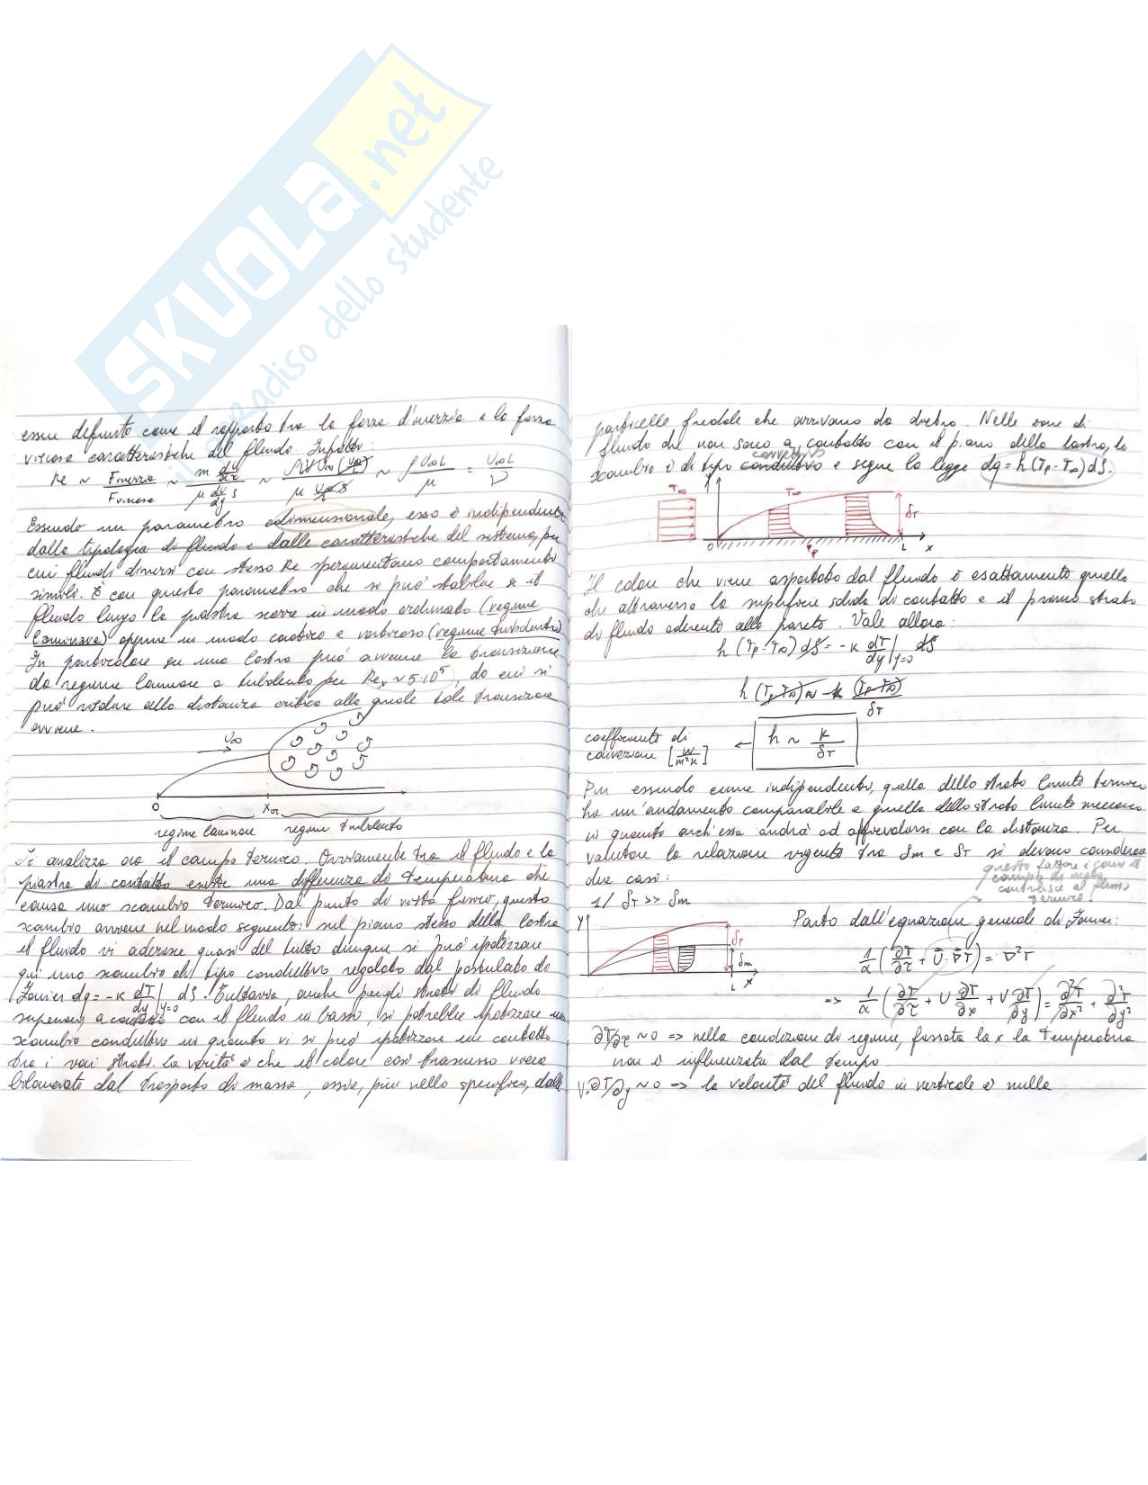 SKUOLA.net
paradiso dello studente
essere definito come il rapporto tra la forza d'inerzia e la forza
viscosa caratteristiche del fluido. Infatti:
Re ~ Finerzia/Fviscosa ~ m du/dτ / μ du/dy S ~ ~ ρ U∞ L / μ = U∞ L / ν
Essendo un parametro adimensionale, esso è indipendente
dalla tipologia di fluido e dalle caratteristiche del sistema, per
cui fluidi diversi con stesso Re sperimentano comportamenti
simili. È con questo parametro che si può stabilire se il
fluido lungo la piastra scorre in modo ordinato (regime
laminare) oppure in modo caotico e vorticoso (regime turbolento)
In particolare su una lastra può avvenire la transizione
da regime laminare a turbolento per Rex ~ 5·10⁵, da cui si
può risalire alla distanza critica alla quale tale transizione
avviene.
U∞
O
xcr
regime laminare
regime turbolento
Si analizza ora il campo termico. Ovviamente tra il fluido e la
piastra di contatto esiste una differenza di temperatura che
causa uno scambio termico. Dal punto di vista fisico, questo
scambio avviene nel modo seguente: sul piano stesso della lastra
il fluido vi aderisce quasi del tutto dunque si può ipotizzare
qui uno scambio di tipo conduttivo regolato dal postulato di
Fourier dq = -k dT/dy|y=0 dS. Tuttavia, anche per gli strati di fluido
superiori, a contatto con il fluido in basso, si potrebbe ipotizzare uno
scambio conduttivo in quanto vi si può ipotizzare un contatto
tra i vari strati. La verità è che il calore così trasmesso viene
bilanciato dal trasporto di massa, ossia, più nello specifico, dalle
particelle fredde che arrivano da dietro. Nelle zone di
fluido che non sono a contatto con il piano della lastra, lo
convettivo
scambio è di tipo conduttivo e segue la legge dq = h(Tp - T∞)dS.
T∞
y
T∞
δT
O
Tp
L
x
Il calore che viene asportato dal fluido è esattamente quello
che attraversa la superficie solida di contatto e il primo strato
di fluido aderente alla parete. Vale allora:
h (Tp - T∞) dS = -k dT/dy|y=0 dS
h (Tp - T∞) ~ -k (Tp - T∞)/δT
coefficiente di
convezione [W/m²K] ← h ~ k/δT
Pur essendo curve indipendenti, quella dello strato limite termico
ha un'andamento comparabile a quella dello strato limite meccanico
in quanto anch'essa andrà ad affievolirsi con la distanza. Per
valutare la relazione vigente tra δm e δT si devono considerare
due casi:
1/ δT >> δm
questo fattore
campo di moto
contribuisce al
termico!
y
δT
δm
L
x
Parto dall'equazione generale di Fourier:
1/α (∂T/∂τ + U · ∇T) = ∇²T
=> 1/α (∂T/∂τ + U ∂T/∂x + V ∂T/∂y) = ∂²T/∂x² + ∂²T/∂y²
∂T/∂τ ~ 0 => nella condizione di regime, fissata la x la temperatura
non è influenzata dal tempo
V·∂T/∂y ~ 0 => la velocità del fluido in verticale è nulla